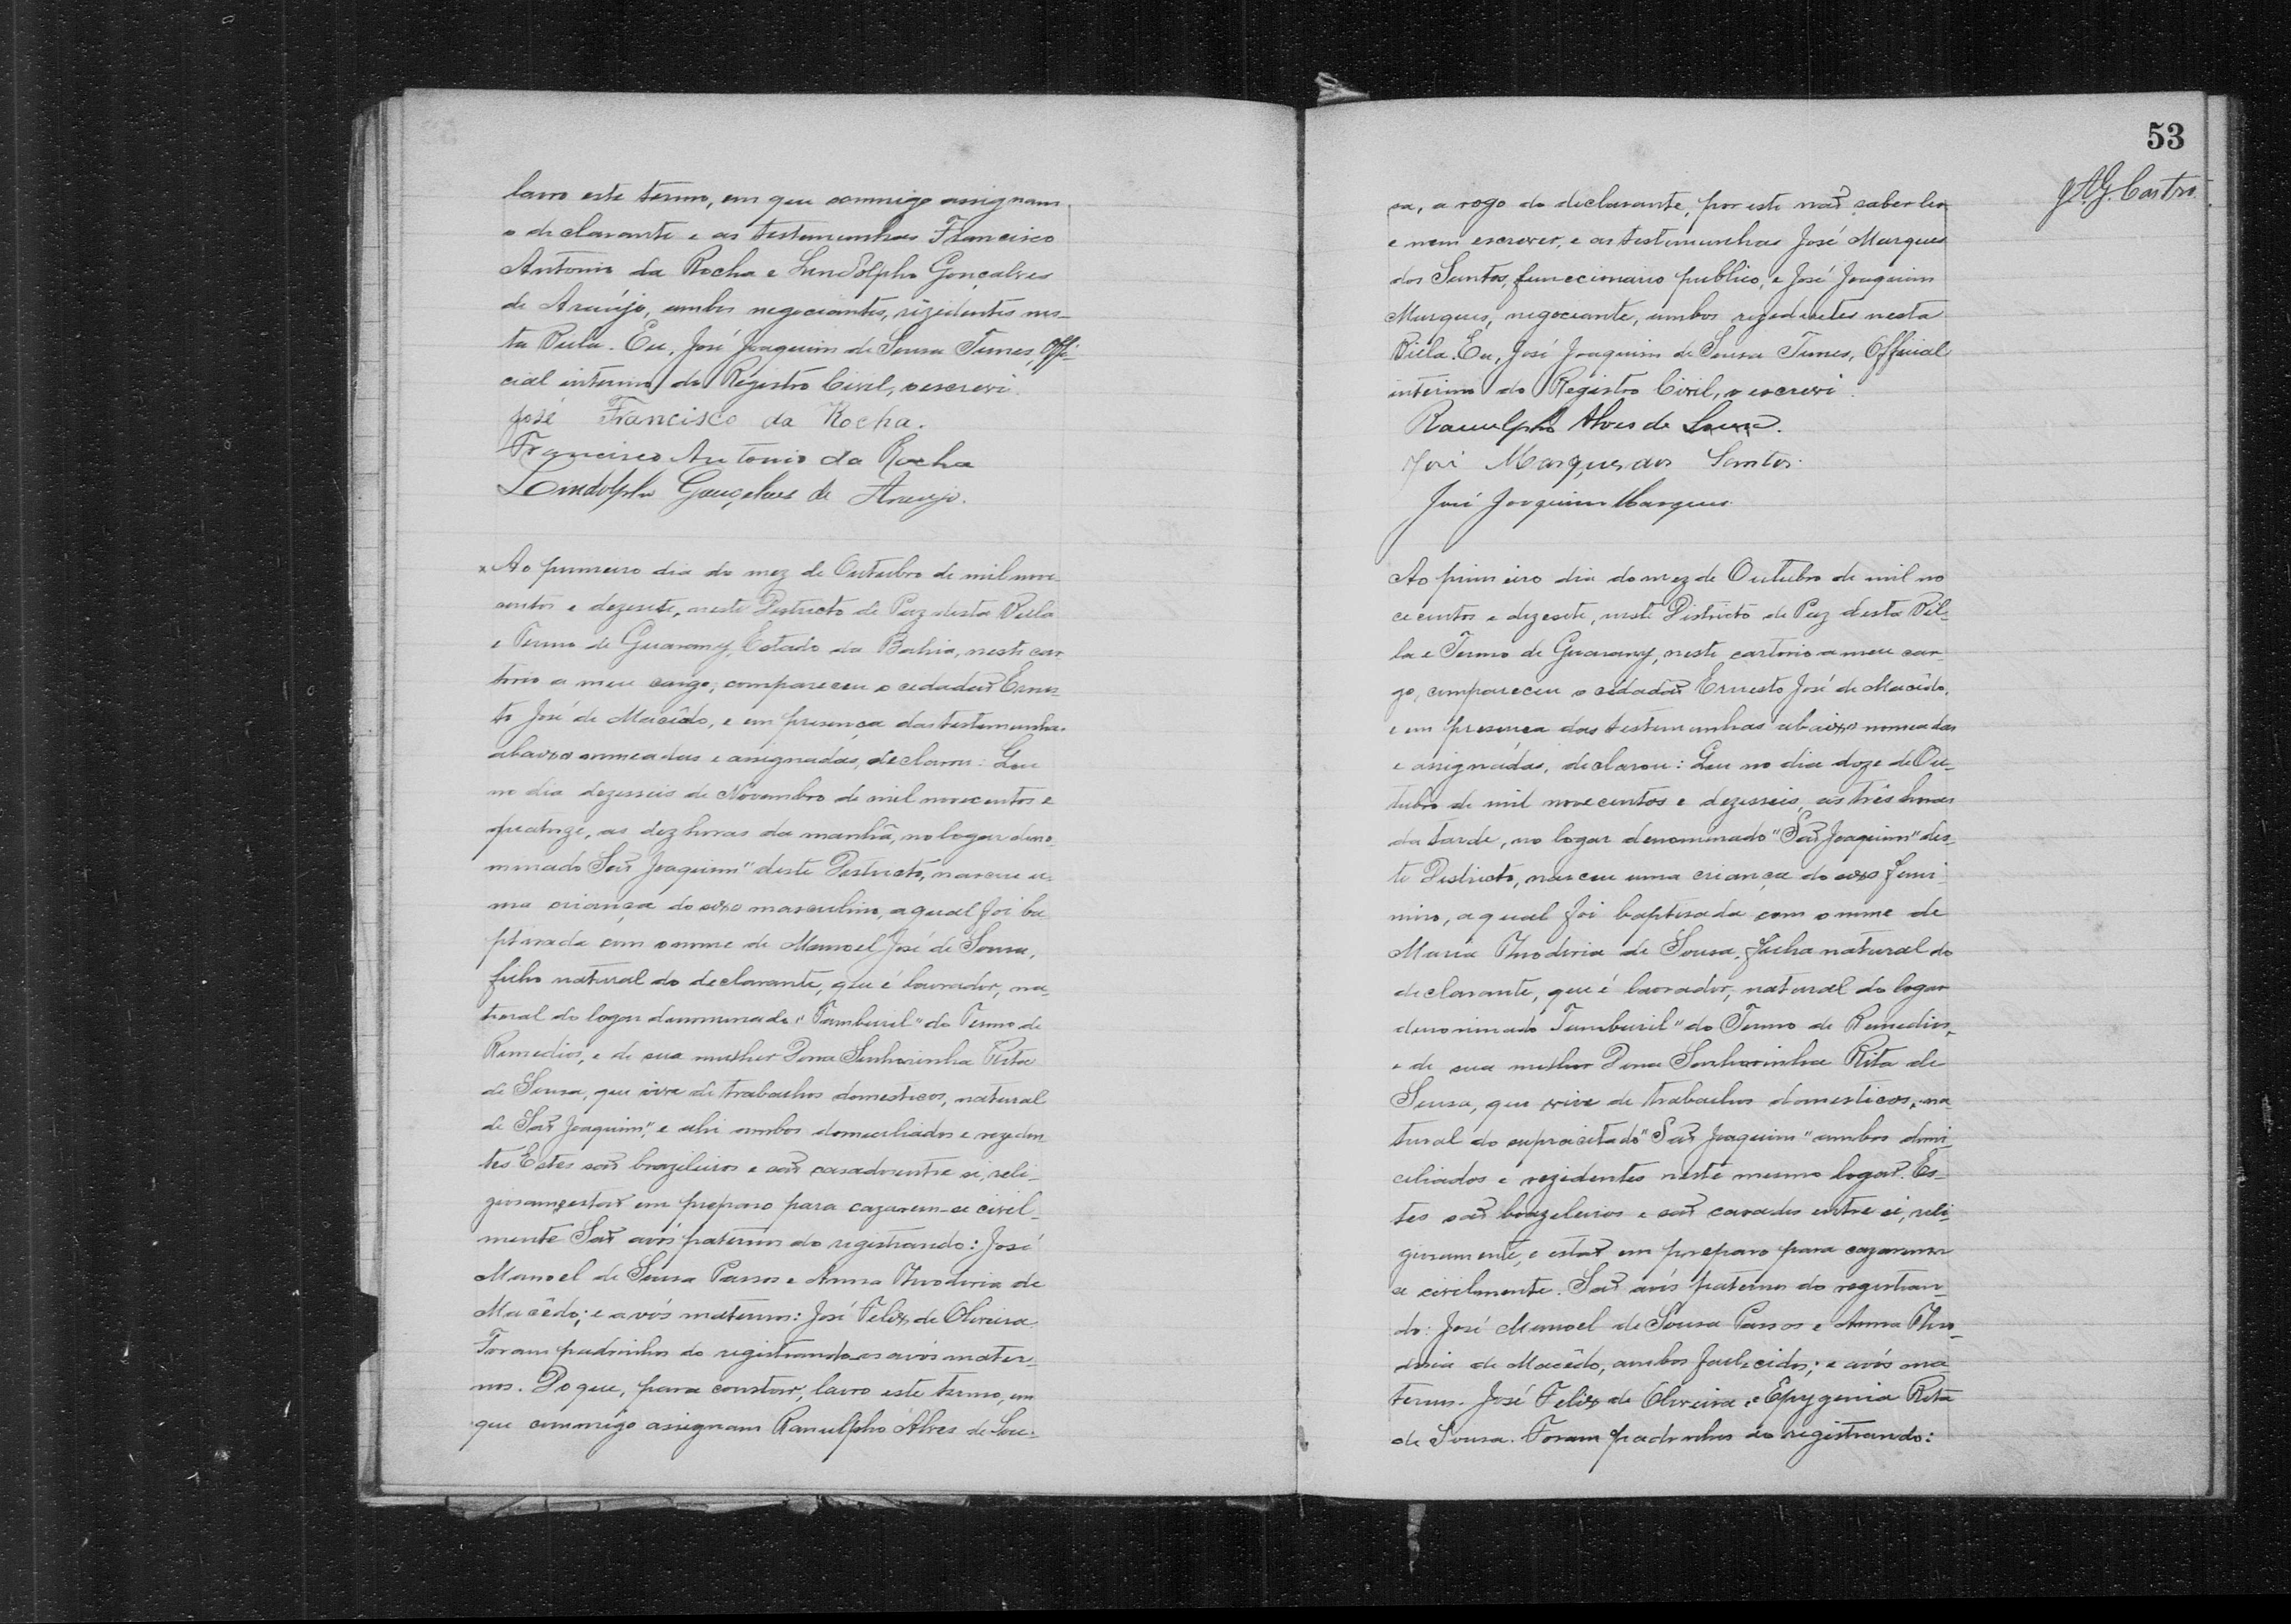 lavro este termo, em que commigo assignam
o declarante e as testemunhas Francisco
Antonio da Rocha e Lindolpho Gonçalves
de Araújo, ambos negociantes, rezidentes nes-
ta Villa. Eu, José Joaquim de Sousa Tunes, Offi-
cial interino do Registro Civil, o escrevi.
José Francisco da Rocha.
Francisco Antonio da Rocha
Lindolpho Gonçalves de Araujo.
Ao primeiro dia do mez de Outubro de mil nove-
centos e dezesete, neste Districto de Paz desta Villa
e Termo de Guarany, Estado da Bahia, neste car-
torio a meu cargo, compareceu o cidadão Ernes-
to José de Macêdo, e em presença das testemunhas
abaixo nomeadas e assignadas, declarou: Que
no dia dezesseis de Novembro de mil novecentos e
quatorze, as dez horas da manhã, no logar deno-
minado São Joaquim" deste Districto, nasceu u-
ma criança do sexo masculino, a qual foi ba-
ptisada com o nome de Manoel José de Sousa,
filho natural do declarante, que é lavrador, na-
tural do logar denominado "Tamburil" do Termo de
Remedios, e de sua mulher Dona Senhorinha Rita
de Sousa, que vive de trabalhos domesticos, natural
de São Joaquim", e ahi ambos domiciliados e reziden-
tes Estes são brazileiros e são casados entre si, reli-
giosam, e estão em preparo para cazarem-se civil-
mente São avós paternos do registrando: José
Manoel de Sousa Passos e Anna Theodoria de
Macêdo; e avós maternos: José Felix de Oliveira
Foram padrinhos do registrando os avós mater-
nos. Do que, para constar, lavro este termo, em
que commigo assignam Ranulpho Alves de Sou-
53
J.A.G. Castro.
sa, a rogo do declarante, por este não saber ler
e nem escrever, e as testimunhas José Marques
dos Santos, funccionario publico, e José Joaquim
Marques, negociante, ambos rezidentes nesta
Villa. Eu, José Joaquim de Sousa Tunes, Official
interino do Registro Civil, o escrevi.
Ranulpho Alves de Sousa.
José Marques dos Santos.
José Joaquim Marques
Ao primeiro dia do mez de Outubro de mil no
vecentos e dezesete, neste Districto de Paz desta Vil-
la e Termo de Guarany, neste cartorio a meu car-
go, compareceu o cidadão Ernesto José de Macêdo,
e em presença das testemunhas abaixo nomeadas
e assignadas, declarou: Que no dia doze de Ou-
tubro de mil novecentos e dezesseis, ás três horas
da tarde, no logar denominado "São Joaquim" des-
te Districto, nasceu uma criança do sexo femi-
nino, a qual foi baptisada com o nome de
Maria Theodoria de Sousa, filha natural do
declarante, que é lavrador, natural do logar
denominado Tamburil" do Termo de Remedios,
e de sua mulher Dona Senhorinha Rita de
Sousa, que vive de trabalhos domesticos, na-
tural do supracitado "São Joaquim" ambos domi-
ciliados e rezidentes neste mesmo logar. Es-
tes são brazileiros e são casados entre si, reli-
giosamente, e estão em preparo para cazarem
se civilmente. São avós paternos do registran-
do: José Manoel de Sousa Passos e Anna Theo-
doria de Macêdo, ambos fallecidos; e avós ma
ternos. José Felix de Oliveira e Epygenia Rita
de Sousa. Foram padrinhos do registrando: